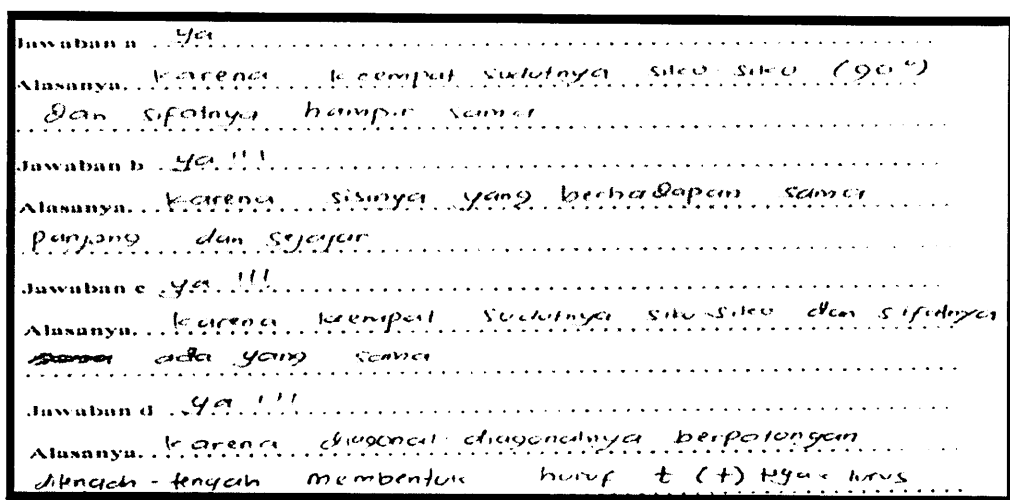 Jawaban a ya
Alasanya. karena keempat sudutnya siku siku (90°)
dan sifatnya hampir sama
Jawaban b ya !!!
Alasanya. karena sisinya yang berhadapan sama
panjang dan sejajar
Jawaban c ya !!!
Alasanya. karena keempat sudutnya siku-siku dan sifatnya
ada yang sama
Jawaban d ya !!!
Alasanya. karena diagonal-diagonalnya berpotongan
ditengah-tengah membentuk huruf t (t) lurus